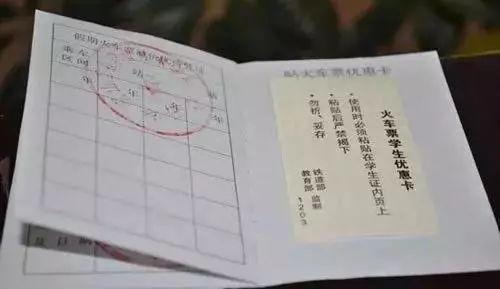 假期火车票
乘车
区间
站
年
年
及日期
贴火车票优惠卡
火车票学生优惠卡
·使用时必须粘贴在学生证内页上
·粘贴后严禁揭下
·勿折、妥存
铁道部 监制
教育部 1203